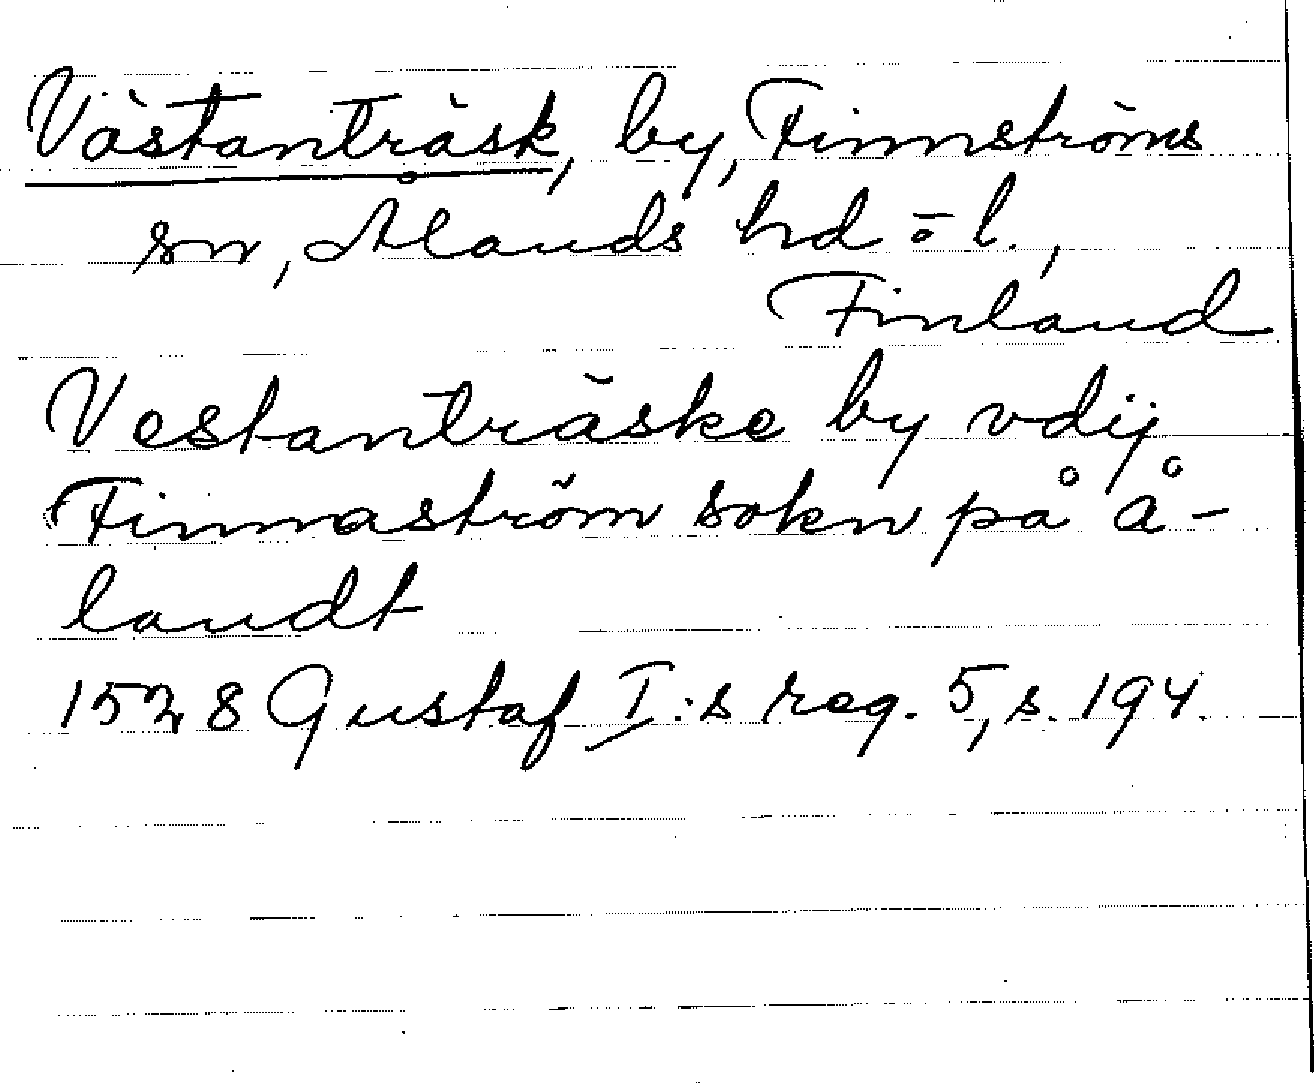 Västanträsk, by, Finnströms
sn, Ålands hd o l.,
Finland
Vestanträske by vdij
Finnaström sokn på å-
landt
1528 Gustaf I:s reg. 5, s. 194.